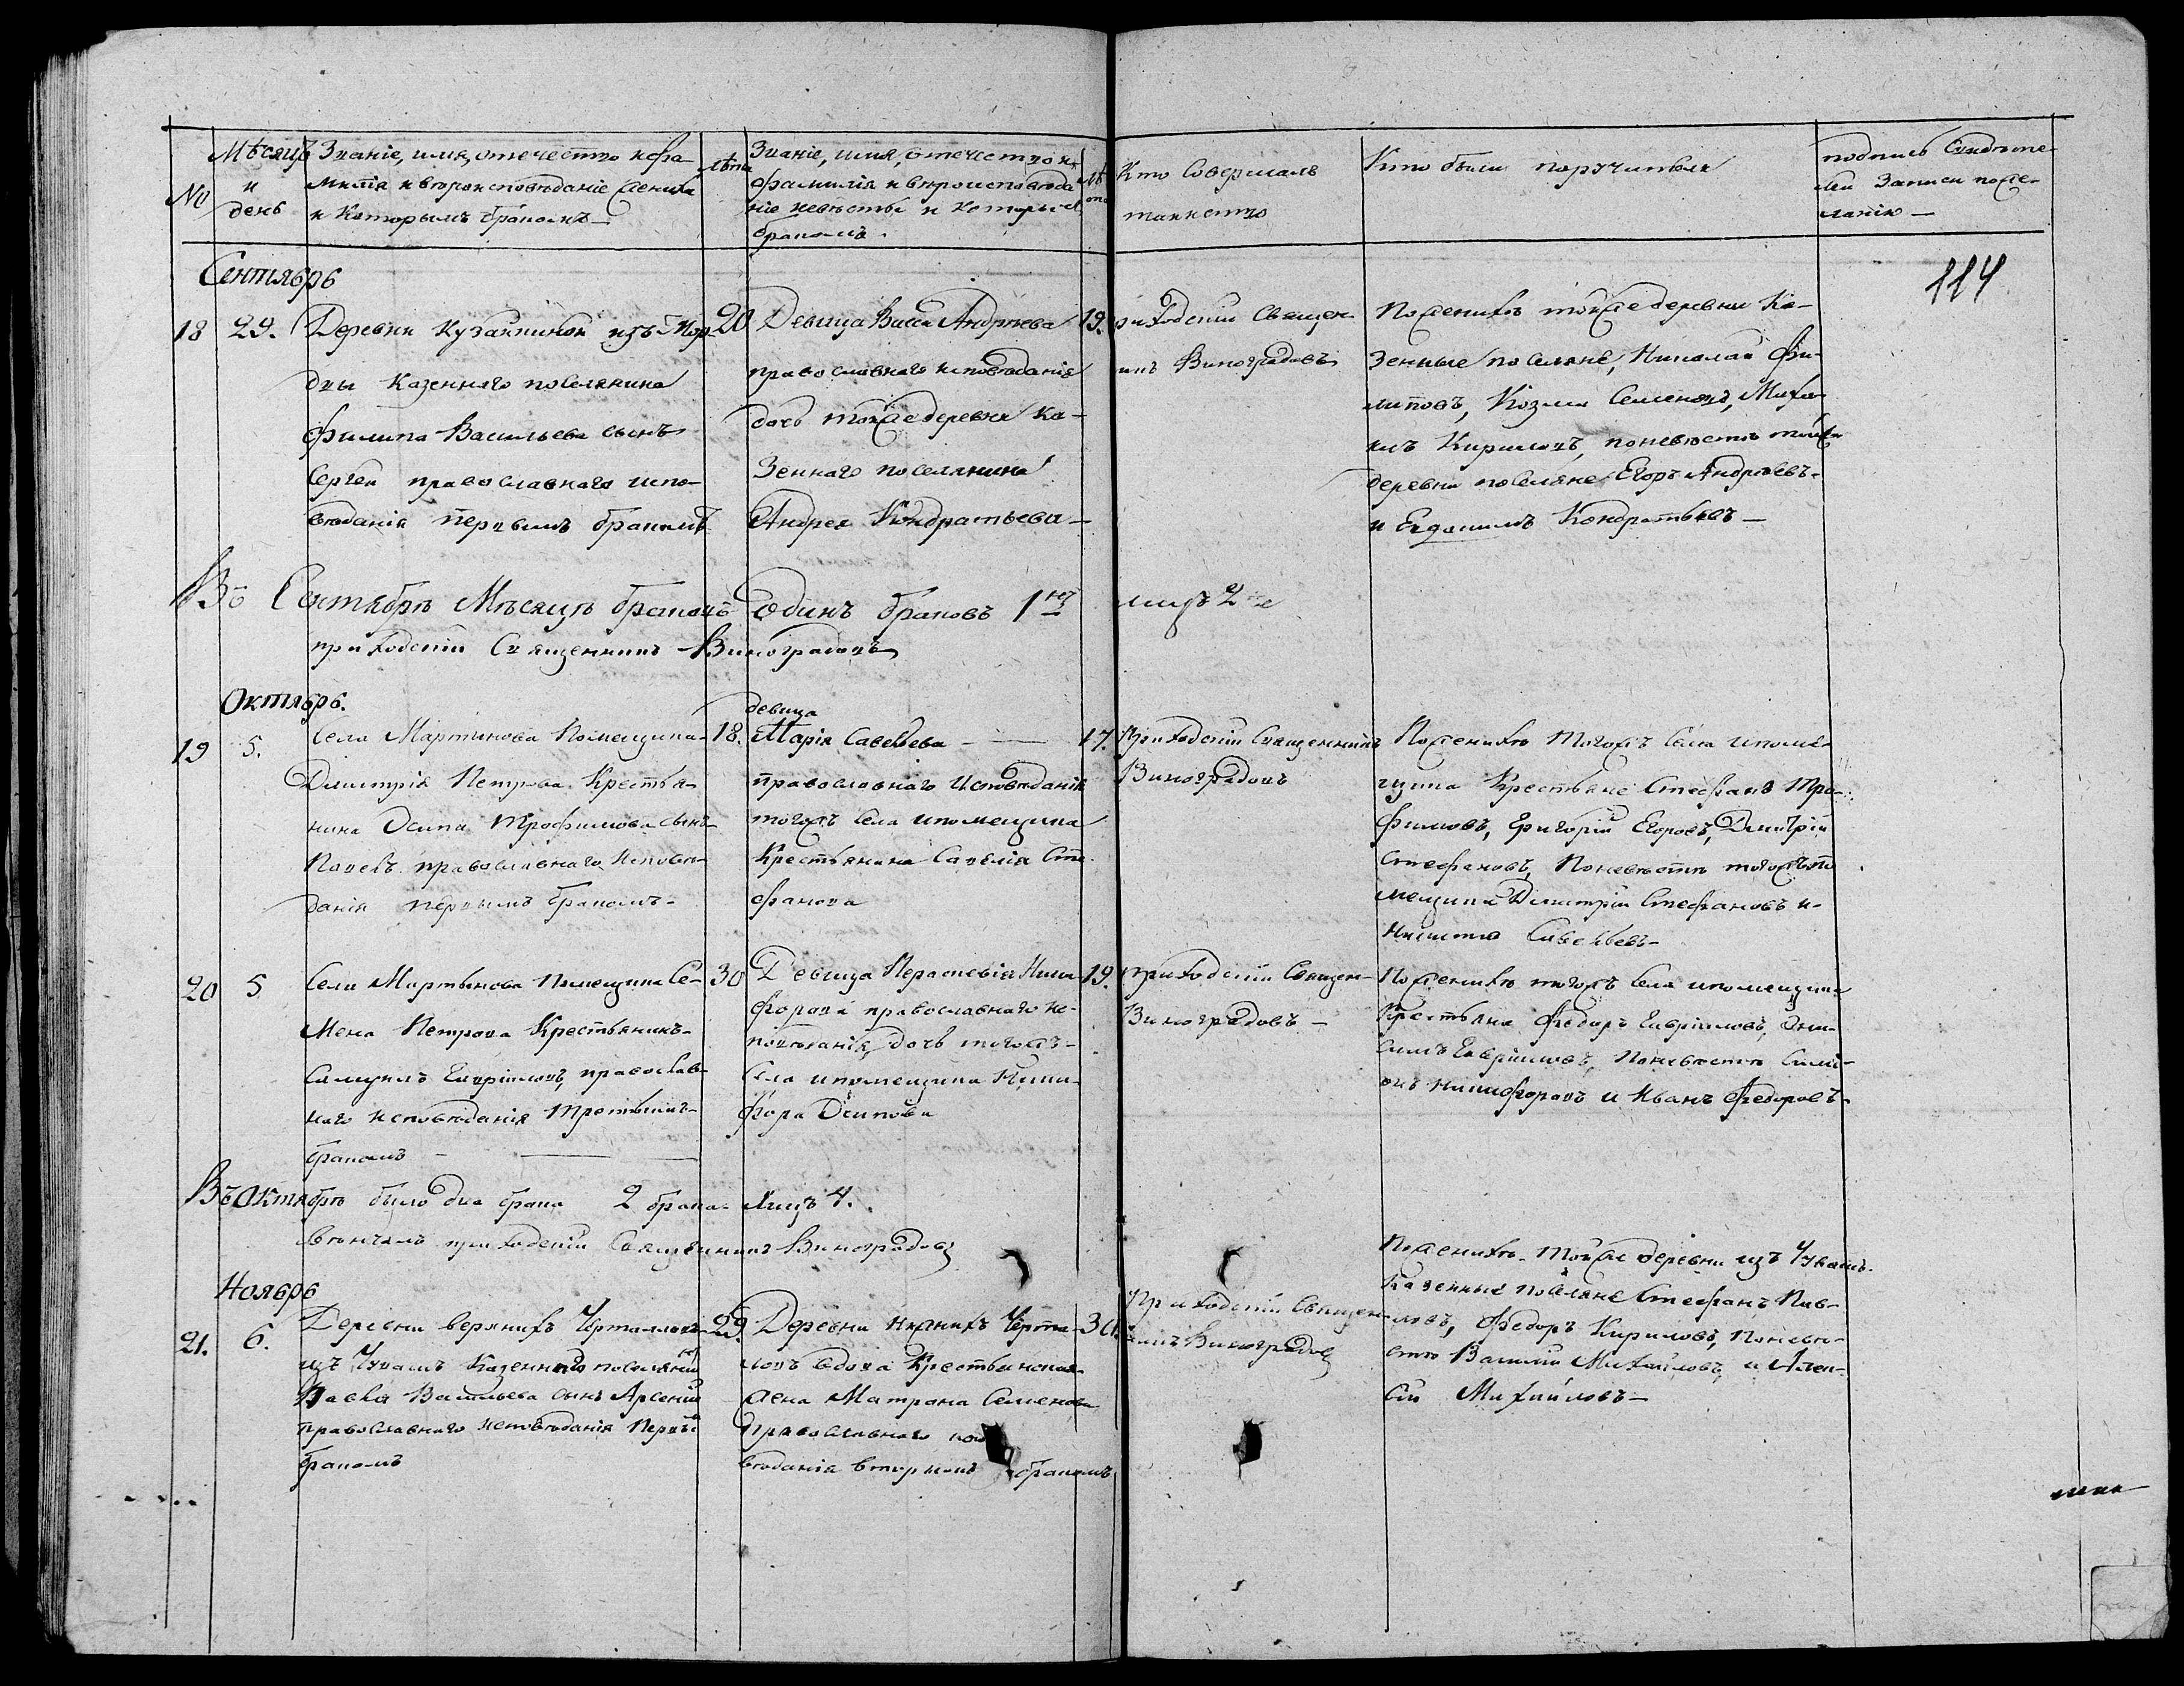 №
Мѣсяцъ
и
день
Званіе, имя, отечество и фа-
милія и вѣроисповѣданіе жениха
и которымъ бракомъ —
лѣта
Званіе, имя, отечество и
фамилія и вѣроисповѣда
ніе невѣсты и которым
бракомъ.
Кто совершалъ
таинство
Кто были поручители
подпись свидѣте-
лей записи по же-
ланію —
114
Сентябрь
18 29.
Деревни Кузайкиной изъ Мор-
двы казеннаго поселянина
Филипа Васильева сынъ
Сергей православнаго испо-
вѣданія первымъ бракомъ
20
Девица Васса Андреева
православнаго исповѣданія
дочь тойже деревни ка-
зеннаго поселянина
Андрея Кондратьева —
19.
приходскій Священ-
никъ Виноградовъ
По женихѣ тойже деревни ка-
зенные поселяне, Николай Фи-
липовъ, Козма Семеновъ, Миха-
илъ Кириловъ, по невѣсте тойже
деревни поселяне Егоръ Андреевъ
и Кондратьевъ —
Въ Сентябрѣ Мѣсяцѣ браковъ одинъ браковъ 1 лицъ 2
приходскій Священникъ Виноградовъ
Октябрь.
19 5.
Села Мартинова Помещика
Димитрія Петрова Крестья-
нина Осипа Трофимова сынъ
Павелъ православнаго исповѣ-
данія первымъ бракомъ —
18.
девица
Марія Савельева —
православнаго исповѣданія
тогожъ села и помещика
Крестьянина Савелія Сте-
фанова
17.
Приходскій Священникъ
Виноградовъ
По женихѣ тогожъ села и поме-
щика Крестьяне Стефанъ Тро-
фимовъ, Григорій Егоровъ, Дмитрій
Стефановъ, По невѣсте тогожъ по
мещика Димитрій Стефановъ и
Никита Савельевъ —
20 5
Села Мартынова Помещика Се-
мена Петрова Крестьянинъ
Самуилъ Гавріиловъ, православ-
наго исповѣданія третьимъ
бракомъ —
30
Девица Параскевія Ники-
форова православнаго ис-
повѣданія, дочь тогожъ
села и помещика Ники-
фора Осипова
19.
приходскій Священ-
Виноградовъ —
По женихѣ тогожъ села и помещика
Крестьяне Федоръ Гавріиловъ, Они-
симъ Гавріиловъ, По невѣсте Симе-
онъ Никифоровъ и Иванъ Федоровъ —
Въ Октябрѣ было два брака 2 брака лицъ 4.
вѣнчалъ приходскій Священникъ Виноградовъ
Ноябрь
21. 6.
Деревни верхнихъ Черталловъ
изъ Чувашъ Казеннаго поселянина
Павла Васильева сынъ Арсеній
православнаго исповѣданія первымъ
бракомъ
29.
Деревни нижнихъ Черта-
ловъ вдова Крестьянская
жена Матрона Семенова
православнаго испо
вѣданія вторымъ бракомъ
30.
Приходскій Священ-
никъ Виноградовъ
По женихѣ тойже деревни изъ Чувашъ
Казенные поселяне Стефанъ Пав-
ловъ, Федоръ Кириловъ, по невѣ-
сте Василій Михайловъ, и Алек-
сѣй Михайловъ —